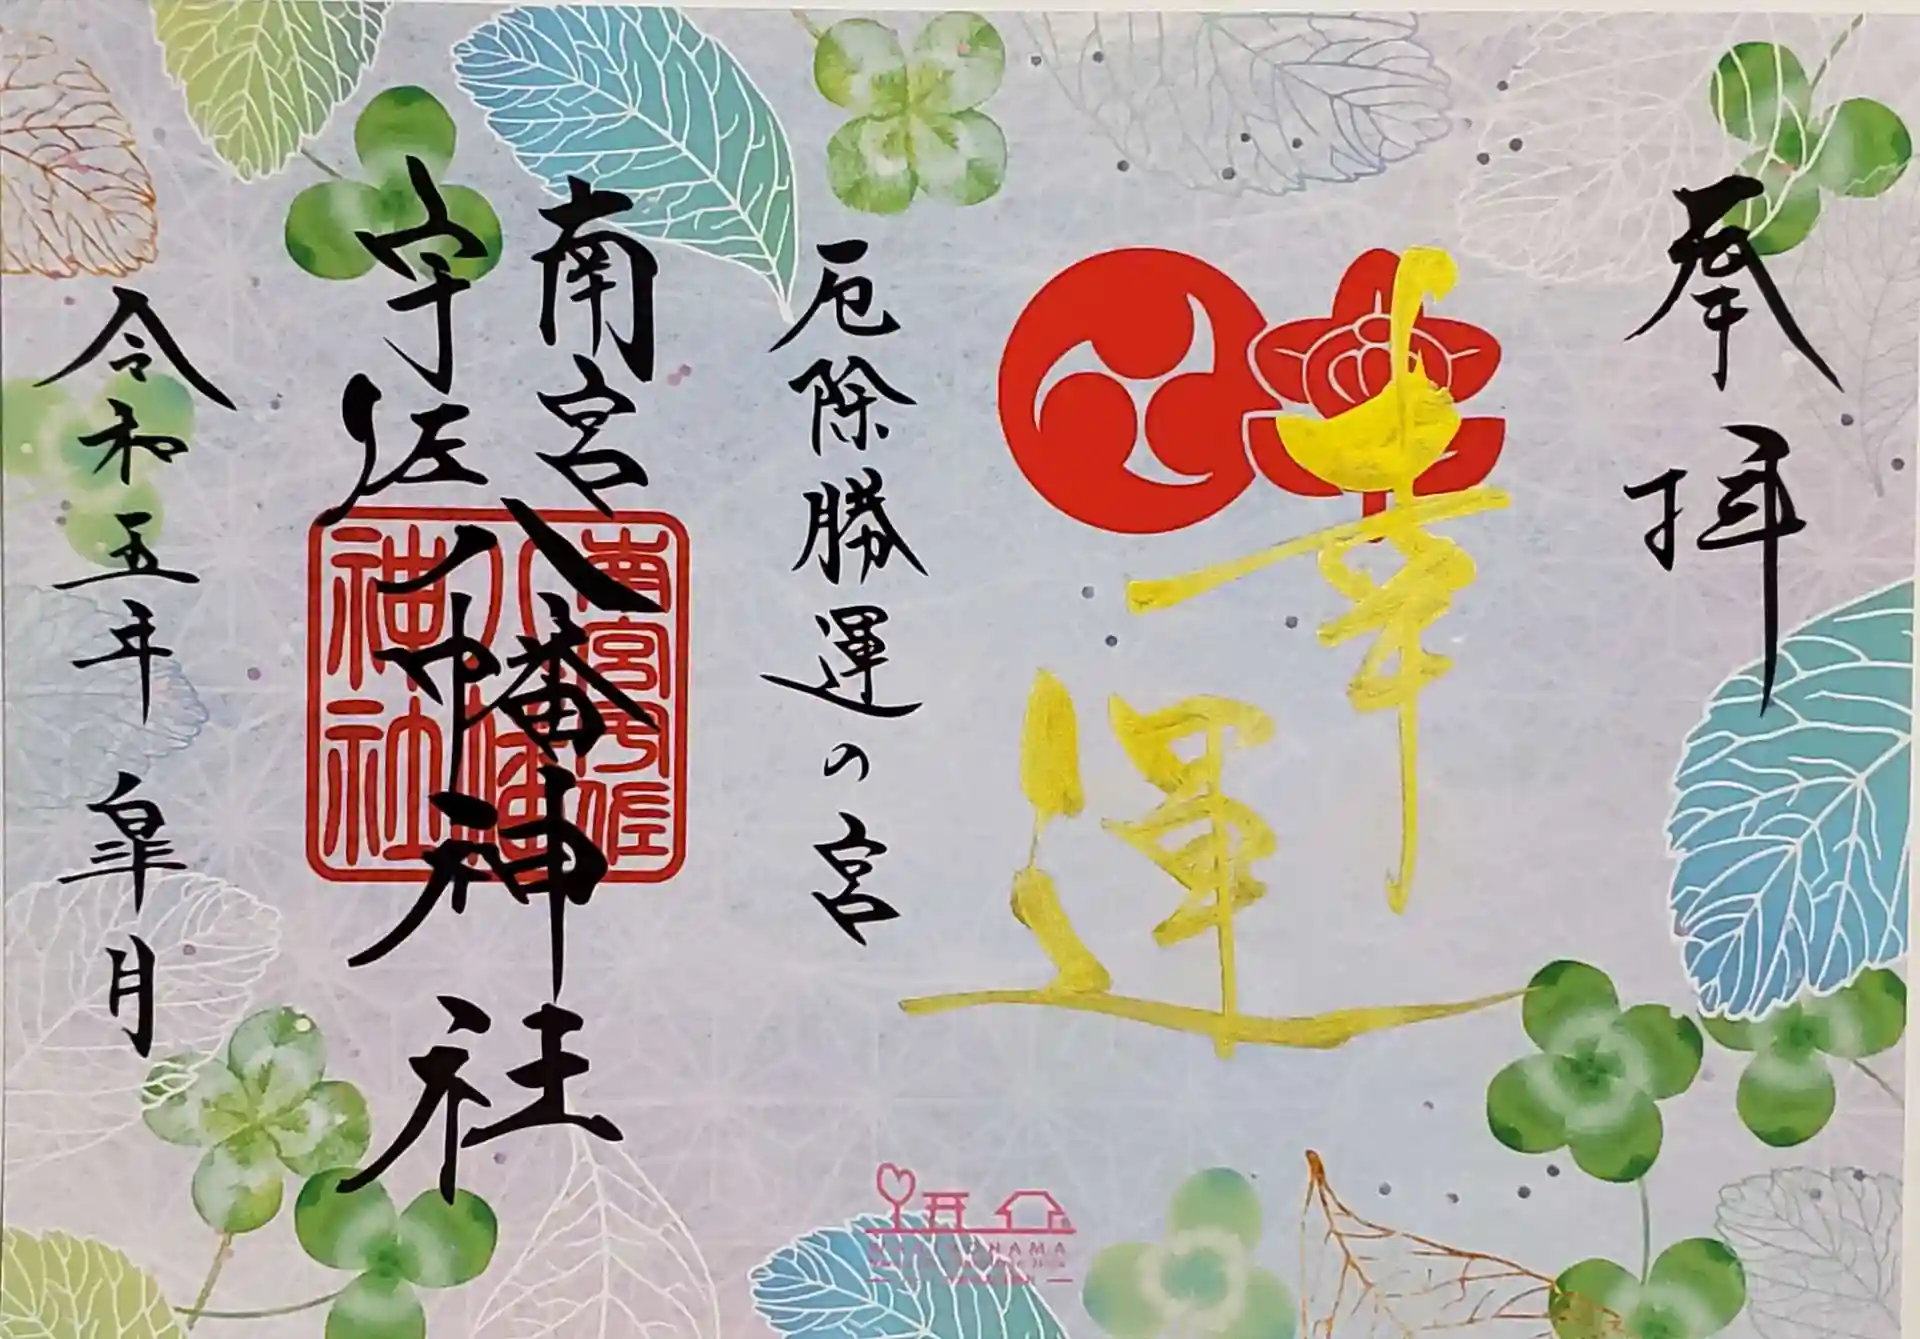 奉拝
幸運
厄除勝運の宮
南宮
宇佐
八幡神社
南宮宇佐
八幡
神社
令和五年 皐月